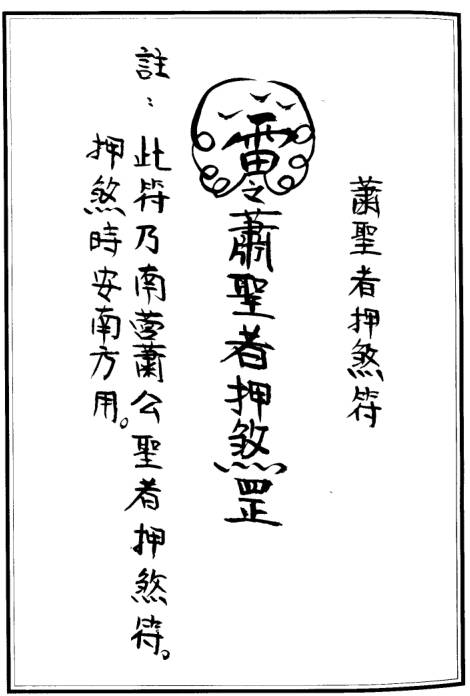 蕭聖者押煞符
雷令蕭聖者押煞罡
註：此符乃南營蕭公聖者押煞符。
押煞時安南方用。